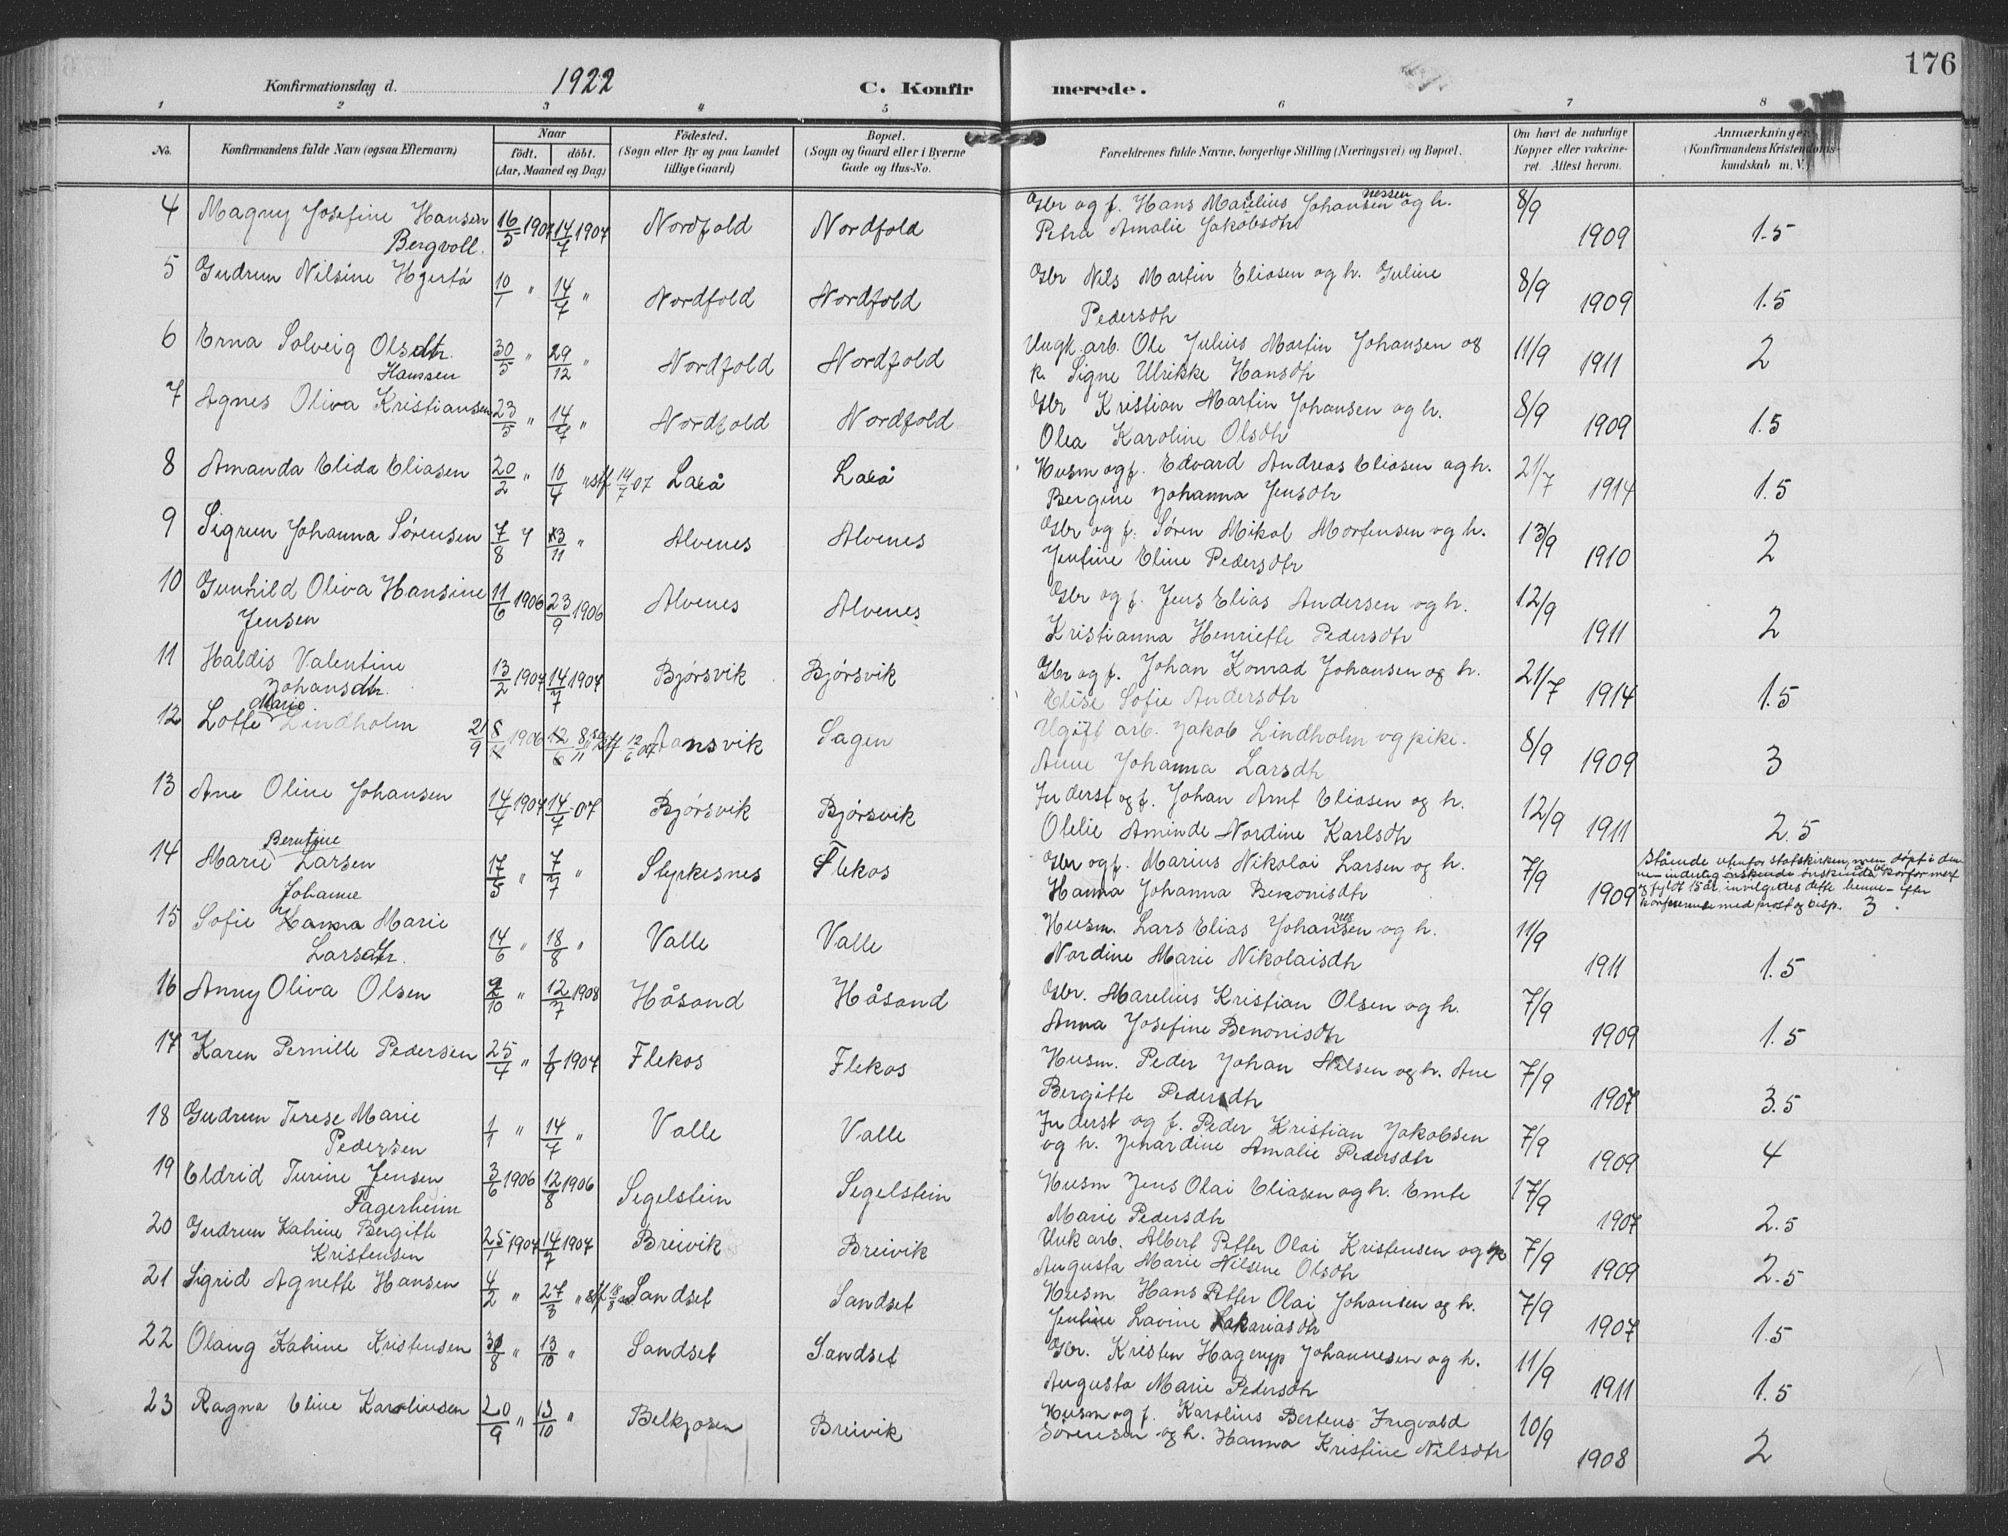 176
Konfirmationsdag d. 1922 C. Konfirmerede.
1 2 3 4 5 6 7 8
No.
Konfirmandens fulde Navn (ogsaa Efternavn)
Naar
født. døbt.
(Aar, Maaned og Dag)
Fødested.
(Sogn eller By og paa Landet
tillige Gaard)
Bopæl.
(Sogn og Gaard eller i Byerne
Gade og Hus-No.
Forældrenes fulde Navne, borgerlige Stilling (Næringsvei) og Bopæl.
Om havt de naturlige
Kopper eller vakcine-
ret. Attest herom.
Anmærkninger
(Konfirmandens Kristendoms-
kundskab m. V.)
4 Magny Josefine Hansen 16/5 1907 14/7 1907 Nordfold Nordfold Gbr og f. Hans Marelius Johansen nessen og h. 8/9
Bergvoll. Petra Amalie Jakobsdtr 1909 1.5
5 Gudrun Nilsine Hjertø 10/1 " 14/7 " Nordfold Nordfold Gbr Nils Martin Eliasen og h. Guline 8/9
Pedersdtr 1909 1.5
6 Erna Solveig Olsdtr. 30/5 " 29/12 " Nordfold Nordfold Ungk. arb. Ole Julius Martin Johansen og 11/9
Hanssen p. Signe Ulrikke Hansdtr 1911 2
7 Agnes Oliva Kristiansen 23/5 " 14/7 " Nordfold Nordfold Gbr Kristian Martin Johansen og h. 8/9
Olea Karoline Olsdtr 1909 1.5
8 Amanda Elida Eliasen 20/2 " 10/4 " stf 14/7 07 Lakså Lakså Husm og f. Edvard Andreas Eliasen og h. 21/7
Bergine Johanna Jensdtr 1914 1.5
9 Sigrun Johanna Sørensen 7/8 " 13/11 " Alvenes Alvenes Gbr og f. Søren Mikal Mortensen og h. 13/9
Jentine Eline Pedersdtr 1910 2
10 Gunhild Oliva Hansine 11/6 1906 23/9 1906 Alvenes Alvenes Gbr og f. Jens Elias Andersen og h. 12/9
Jensen Kristianna Henriette Pedersdtr 1911 2
11 Haldis Valentine 13/2 1907 14/7 1907 Bjørsvik Bjørsvik Gbr og f. Johan Konrad Johansen og h. 21/7
Johansdtr. Elise Sofie Andersdtr 1914 1.5
12 Lotte Marie Lindholm 21/9 1906 Aansvik Sagen Ugift arb. Jakob Lindholm og pike. 8/9
Anne Johanna Larsdtr 1909 3
13 Ane Oline Johansen 14/4 1907 14/7 07 Bjørsvik Bjørsvik Inderst og f. Johan Arnt Eliasen og h. 12/9
Ofelie Aminde Nordine Karlsdtr 1911 2.5
14 Marie Berntine Larsen 17/5 " 7/7 " Styrkesnes Flekos Gbr og f. Marius Nikolai Larsen og h. 7/9
Hanna Johanna Benonisdtr 1909
Stående utenfor statskirken, men døpt i den-
3
15 Sofie Hanna Johanne Marie 14/6 " 18/8 " Valle Valle Husm. Lars Elias Johansen nes og h. 11/9
Larsdtr. Nordine Marie Nikolaisdtr 1911 1.5
16 Anny Oliva Olsen 2/10 " 12/7 1908 Håsand Håsand Gbr. Marelius Kristian Olsen og h. 7/9
Anna Josefine Benonisdtr 1909 1.5
17 Karen Pernille Pedersen 25/4 " 1/9 1907 Flekos Flekos Husm. Peder Johan Nilsen og h. Ane 7/9
Bergitte Pedersdtr 1907 3.5
18 Gudrun Terese Marie 1/1 " 14/7 " Valle Valle Inderst og f. Peder Kristian Jakobsen 7/9
Pedersen og h. Jenardine Amalie Pedersdtr 1909 4
19 Eldrid Turine Jensen 3/6 1906 12/8 1906 Segelstein Segelstein Husm Jens Olai Eliasen og h. Emte 17/9
Fagerheim Marie Pedersdtr 1907 2.5
20 Gudrun Katrine Bergitte 25/1 1907 14/7 1907 Breivik Breivik Unk arb. Albert Petter Olai Kristensen og p 7/9
Kristensen Augusta Marie Nilsine Olsdtr 1909 2.5
21 Sigrid Agnette Hansen 4/2 " 27/3 " stf Sandset Sandset Husm Hans Petter Olai Johansen og h. 7/9
Jentine Lavine Sakariasdtr 1907 1.5
22 Olaug Katrine Kristensen 31/8 " 13/10 " Sandset Sandset Gbr. Kristen Hagerup Johannesen og h. 11/9
Augusta Marie Pedersdtr 1911 1.5
23 Ragna Eline Karoliusen 20/9 " 13/10 " Belkjosen Breivik Husm og f. Karolius Berteus Ingvald 10/9
Sørensen og h. Hanna Kristine Nilsdtr 1908 2